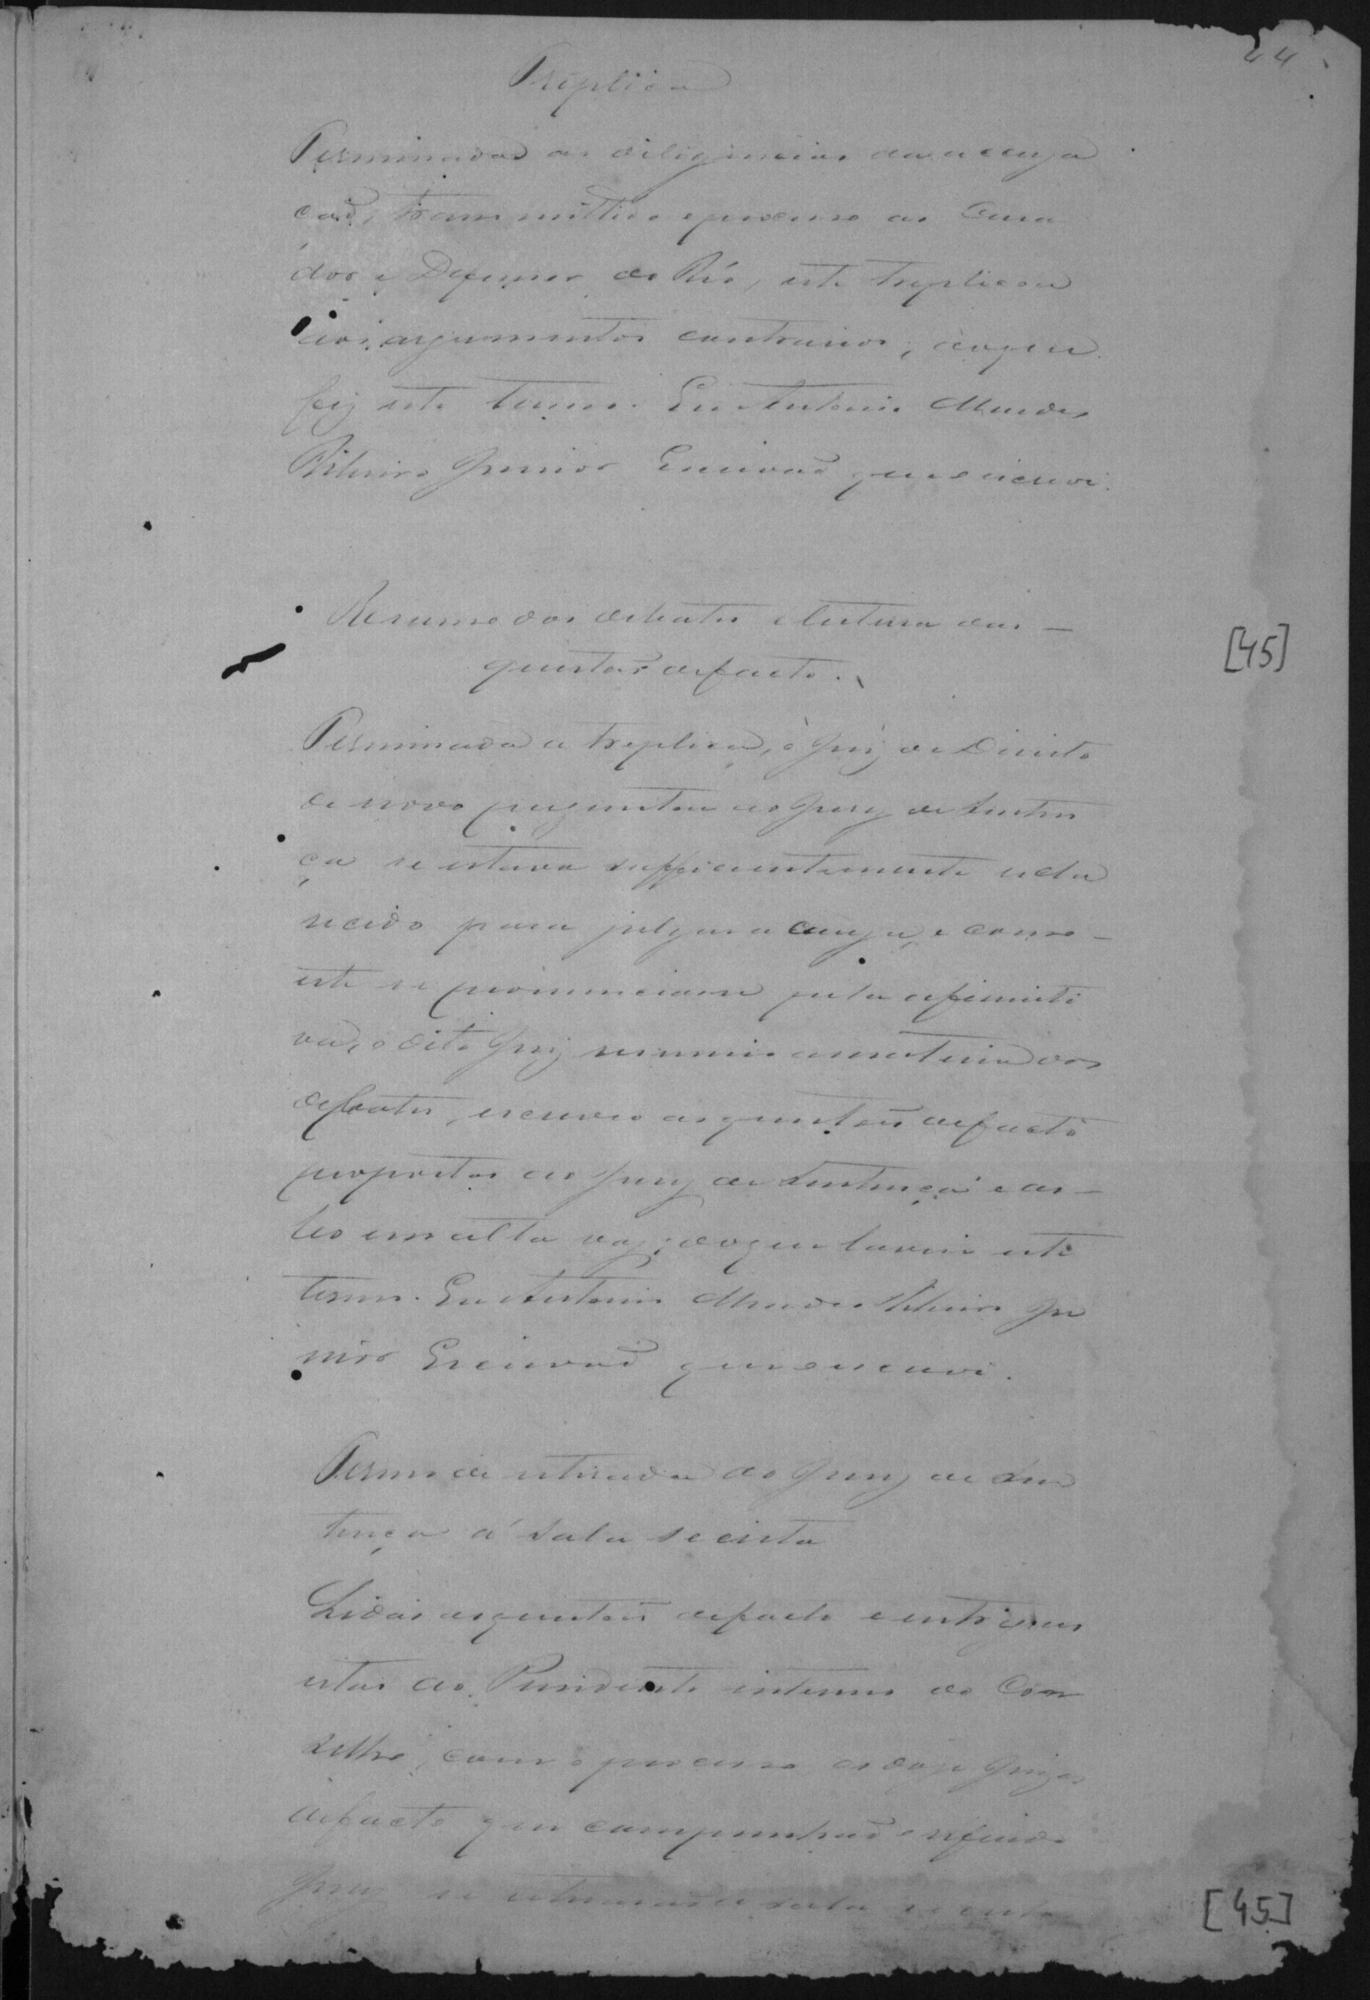 44
Treplica
Terminadas as diligencias da accuza
ção, transmittido o processo ao Cura
dor e Defensor do Réo, este treplicou
aos argumentos contrarios; do que
fiz este termo. Eu Antonio Mendes
Ribeiro Junior Escrivaõ que escrevi.
Resumo dos debates e leitura das
questões de facto.
[45]
Terminada a treplica, o Juiz de Direito
de novo perguntou ao Jury de Senten
ça se estava sufficientemente escla
recido para julgar a cauza, e como
este se pronunciasse pela affirmati
va, o dito Juiz resumio a materia dos
debates, escreveo as questões de facto
propostas ao Jury de Sentença e as
leo em alta voz; do que lavrei este
termo. Eu Antonio Mendes Ribeiro Ju
nior Escrivaõ que escrevi.
Termo de retirada do Jury de Sen
tença á sala secreta
Lidas as questões de facto e entregues
estas ao Presidente interino do Con
selho, com o processo os doze Juizes
de facto que compunhaõ o referido
Jury se retiraraõ a sala secreta
[45]